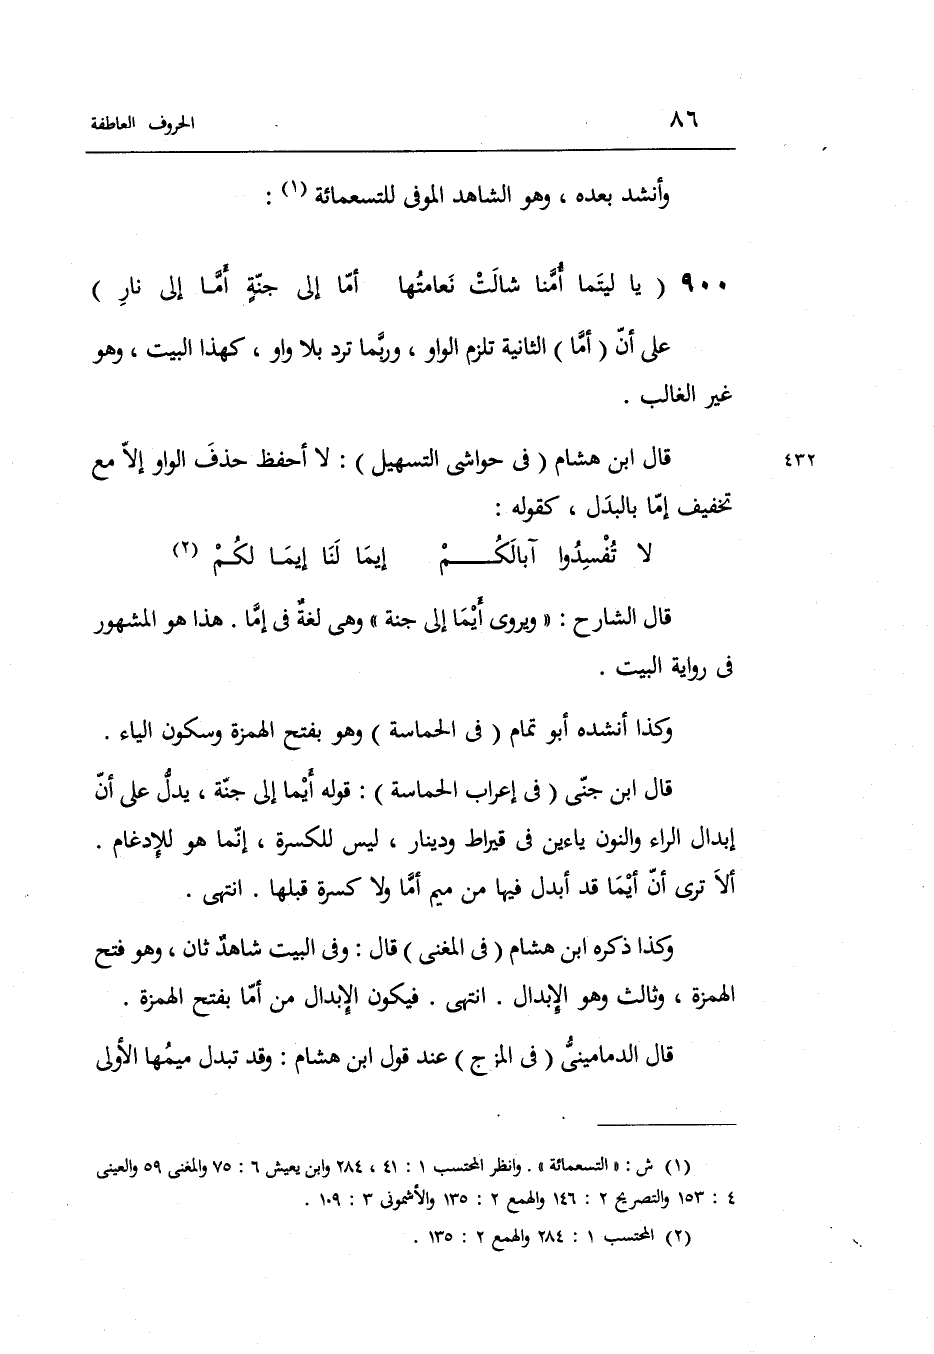 ٨٦ الحروف العاطفة
وأنشد بعده ، وهو الشاهد الموفى للتسعمائة (١) :
٩٠٠ ( يا ليتَما أُمَّنا شالَتْ نَعامتُها أمّا إلى جنّةٍ أَمَّـا إلى نارِ )
على أنّ ( أمَّا ) الثانية تلزم الواو ، وربَّما ترد بلا واو ، كهذا البيت ، وهو
غير الغالب .
قال ابن هشام ( فى حواشى التسهيل ) : لا أحفظ حذفَ الواو إلاّ مع ٤٣٢
تخفيف إمّا بالبدَل ، كقوله :
لا تُفْسِدُوا آبالَكُـــــمْ إيمَا لَنَا إيمَـا لكُـمْ (٢)
قال الشارح : « ويروى أَيْمَا إلى جنة » وهى لغةٌ فى إمَّا . هذا هو المشهور
فى رواية البيت .
وكذا أنشده أبو تمام ( فى الحماسة ) وهو بفتح الهمزة وسكون الياء .
قال ابن جنّى ( فى إعراب الحماسة ) : قوله أَيْما إلى جنّة ، يدلُّ على أنّ
إبدال الراء والنون ياءين فى قيراط ودينار ، ليس للكسرة ، إنّما هو للإدغام .
ألاَ ترى أنّ أيْمَا قد أبدل فيها من ميم أمَّا ولا كسرة قبلها . انتهى .
وكذا ذكره ابن هشام ( فى المغنى ) قال : وفى البيت شاهدٌ ثان ، وهو فتح
الهمزة ، وثالث وهو الإبدال . انتهى . فيكون الإبدال من أمّا بفتح الهمزة .
قال الدمامينىُّ ( فى المزج ) عند قول ابن هشام : وقد تبدل ميمُها الأولى
(١) ش : « التسعمائة » . وانظر المحتسب ١ : ٤١ ، ٢٨٤ وابن يعيش ٦ : ٧٥ والمغنى ٥٩ والعينى
٤ : ١٥٣ والتصريح ٢ : ١٤٦ والهمع ٢ : ١٣٥ والأشمونى ٣ : ١٠٩ .
(٢) المحتسب ١ : ٢٨٤ والهمع ٢ : ١٣٥ .